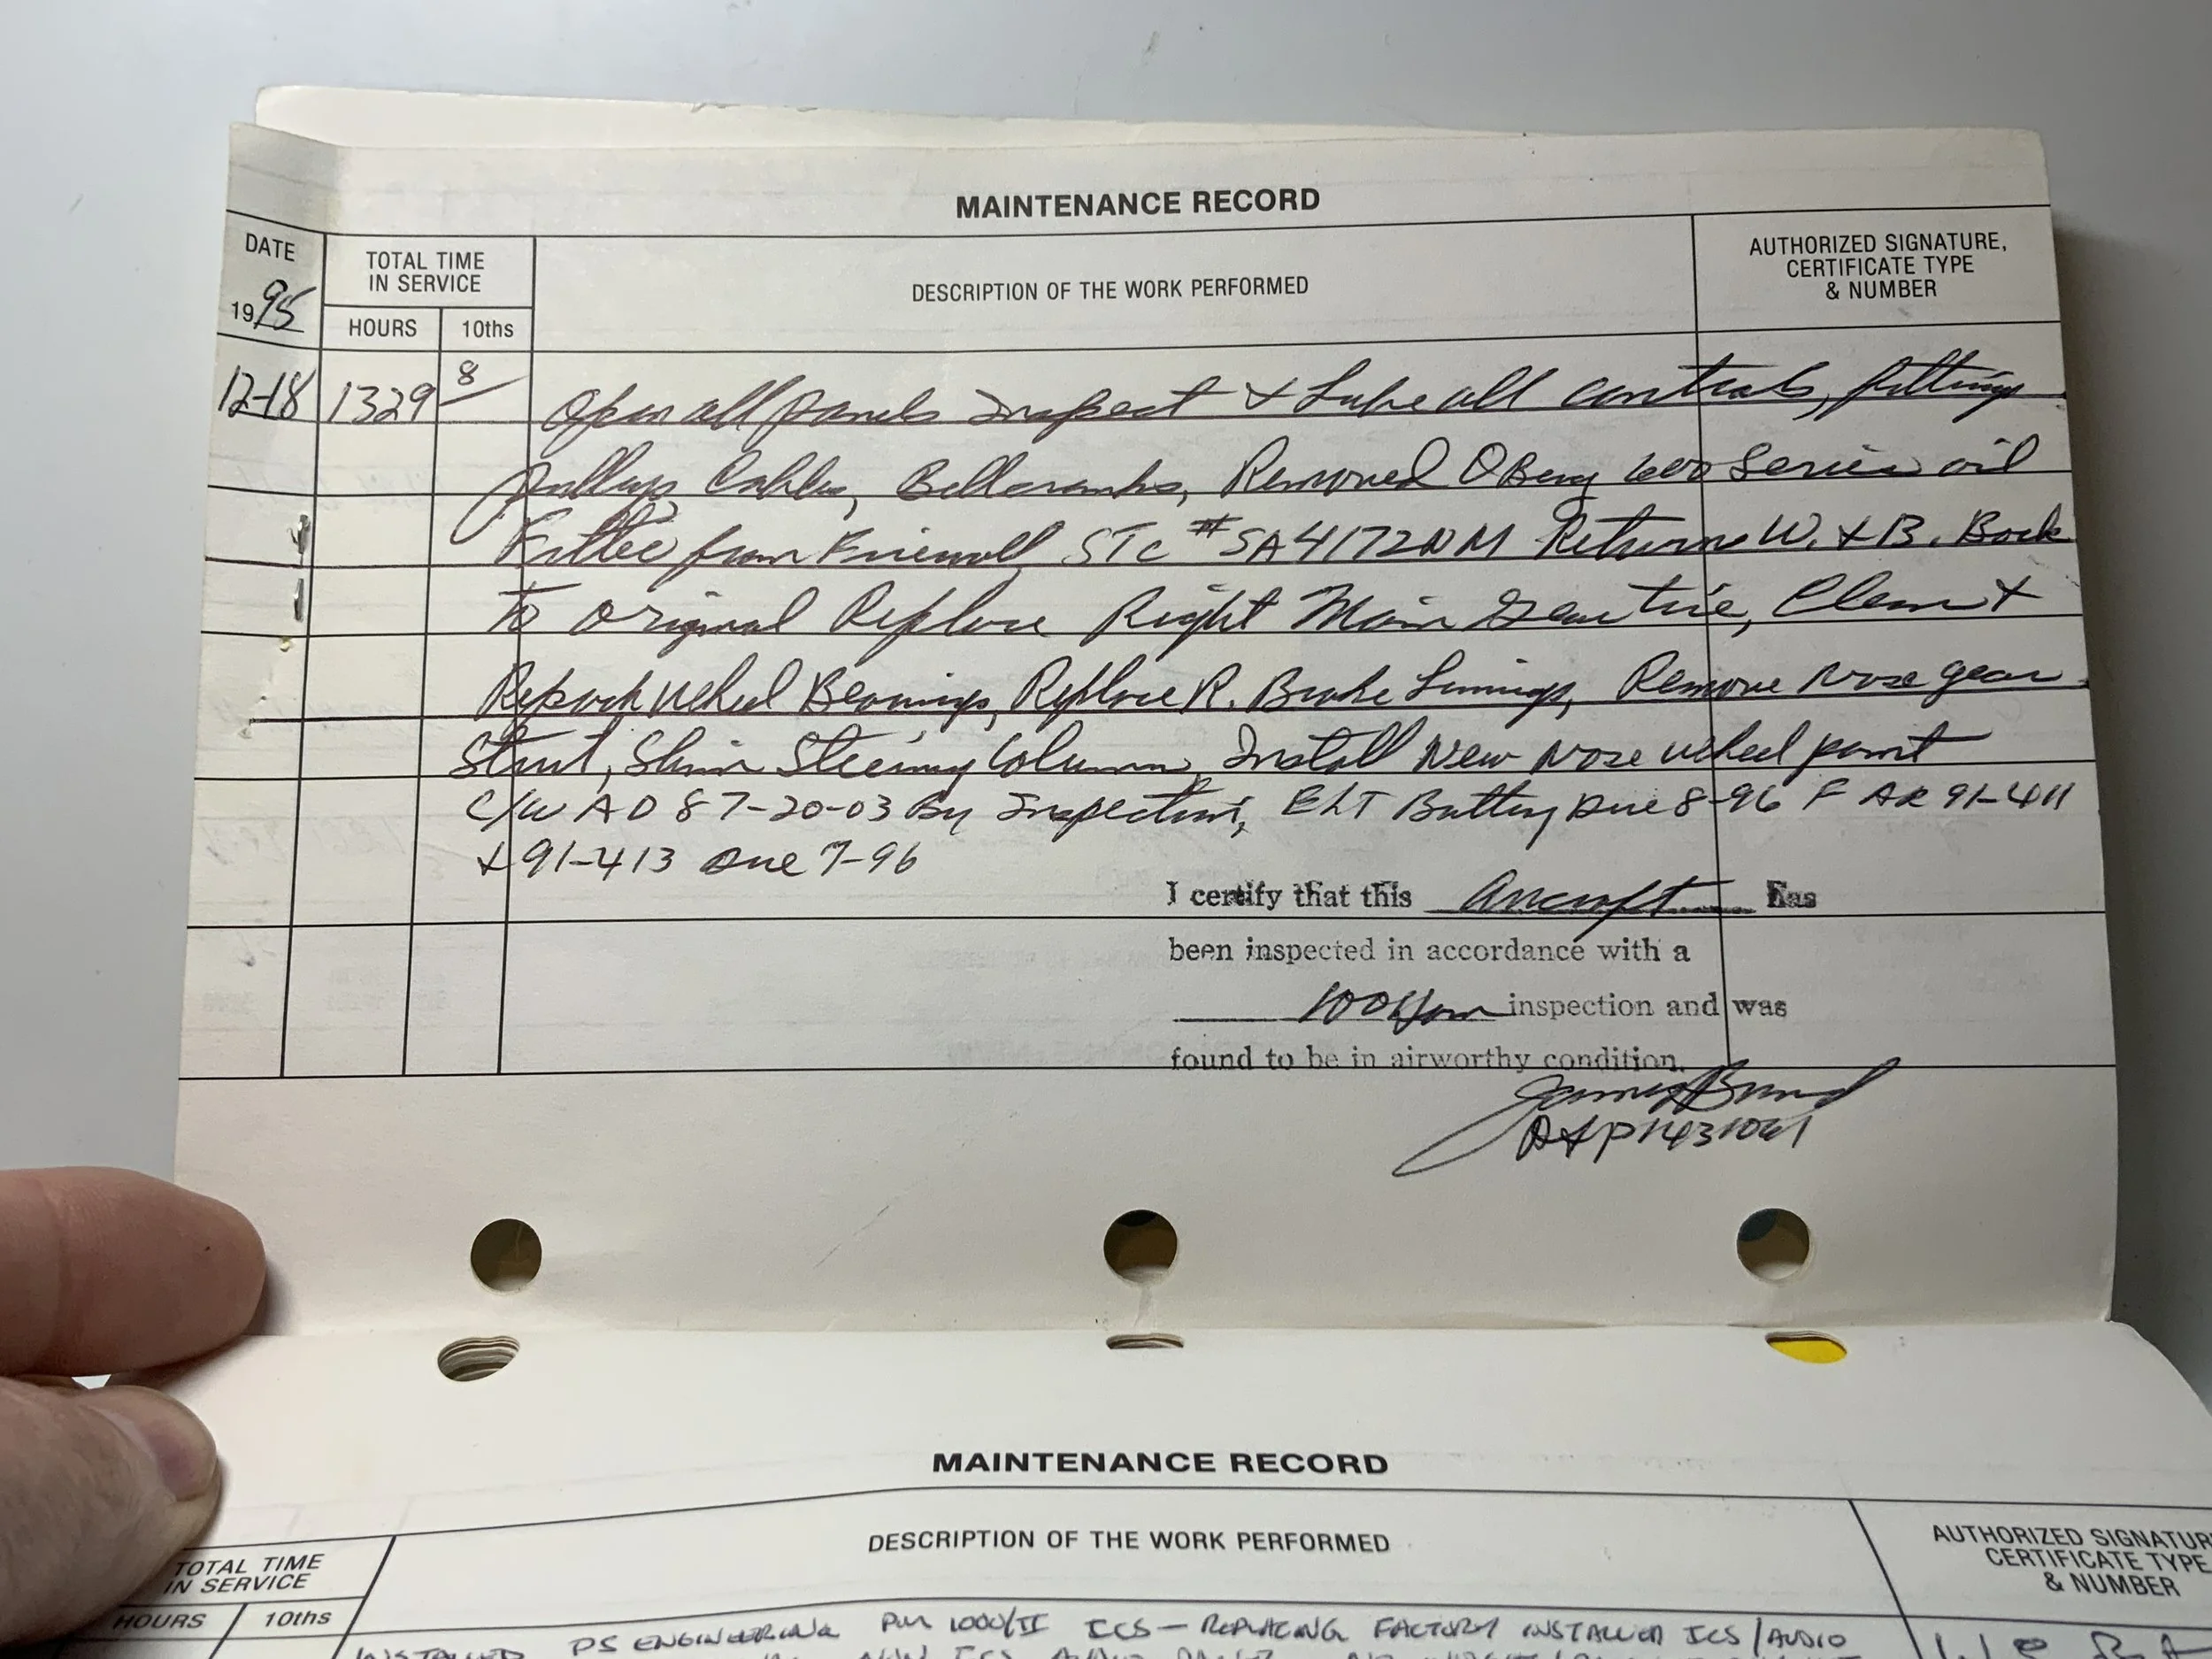 MAINTENANCE RECORD
DATE
TOTAL TIME
IN SERVICE
DESCRIPTION OF THE WORK PERFORMED
AUTHORIZED SIGNATURE,
CERTIFICATE TYPE
& NUMBER
1995
HOURS
10ths
12-18 1329 8 Open all panels Inspect & Lube all controls, fittings
pulleys, Cables, Bellcranks, Removed OBerg 600 Series oil
Filter from Firewall STC #SA4172NM Return W. & B. Back
To original Replace Right Main Gear tire, Clean &
Repack wheel Bearings, Replace R. Brake Linnings, Remove Nose gear
Strut, Shim Steering Column, Install New Nose wheel
C/W AD 87-20-03 By Inspection, ELT Battery Due 8-96 FAR 91-411
& 91-413 Due 7-96
I certify that this Aircraft has
been inspected in accordance with a
100 Hour inspection and was
found to be in airworthy condition.
James
A&P
MAINTENANCE RECORD
TOTAL TIME
IN SERVICE
DESCRIPTION OF THE WORK PERFORMED
AUTHORIZED SIGNATUR
CERTIFICATE TYPE
& NUMBER
HOURS
10ths
INSTALLED PS ENGINEERING PM 1000/II ICS - REPLACING FACTORY INSTALLED ICS/AUDIO